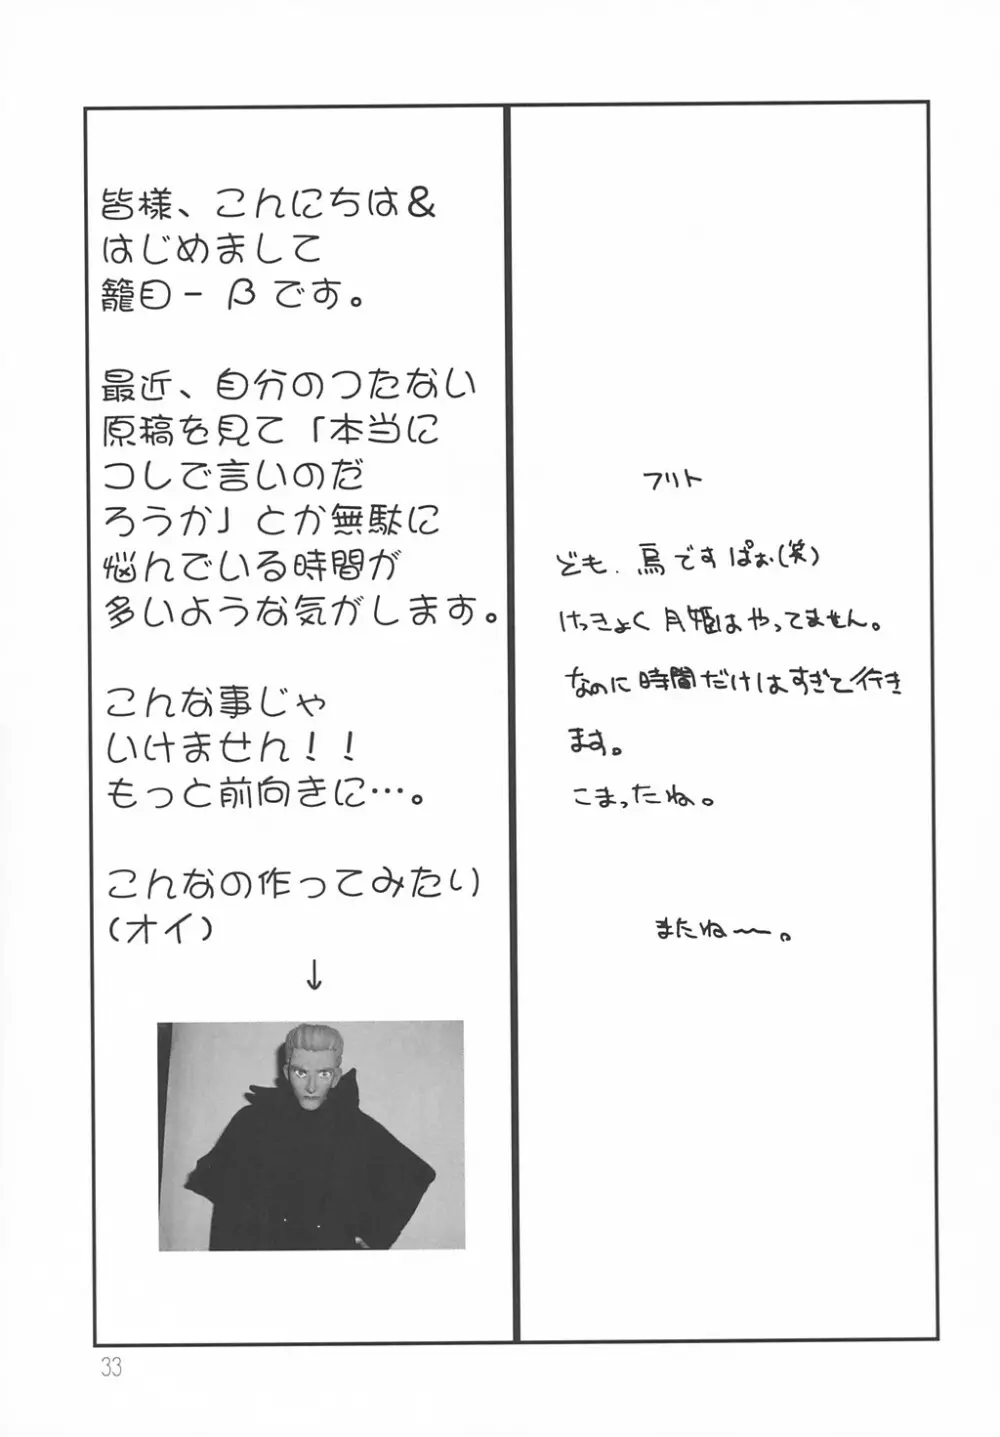 皆様、こんにちは＆
はじめまして
籠目－βです。
最近、自分のつたない
原稿を見て「本当に
コレで言いのだ
ろうか」とか無駄に
悩んでいる時間が
多いような気がします。
こんな事じゃ
いけません！！
もっと前向きに…。
こんなの作ってみたい
(オイ)
↓
フリト
ども、烏ですぱお(笑)
けっきょく月姫はやってません。
なのに時間だけはすぎて行き
ます。
こまったね。
またね〜。
33